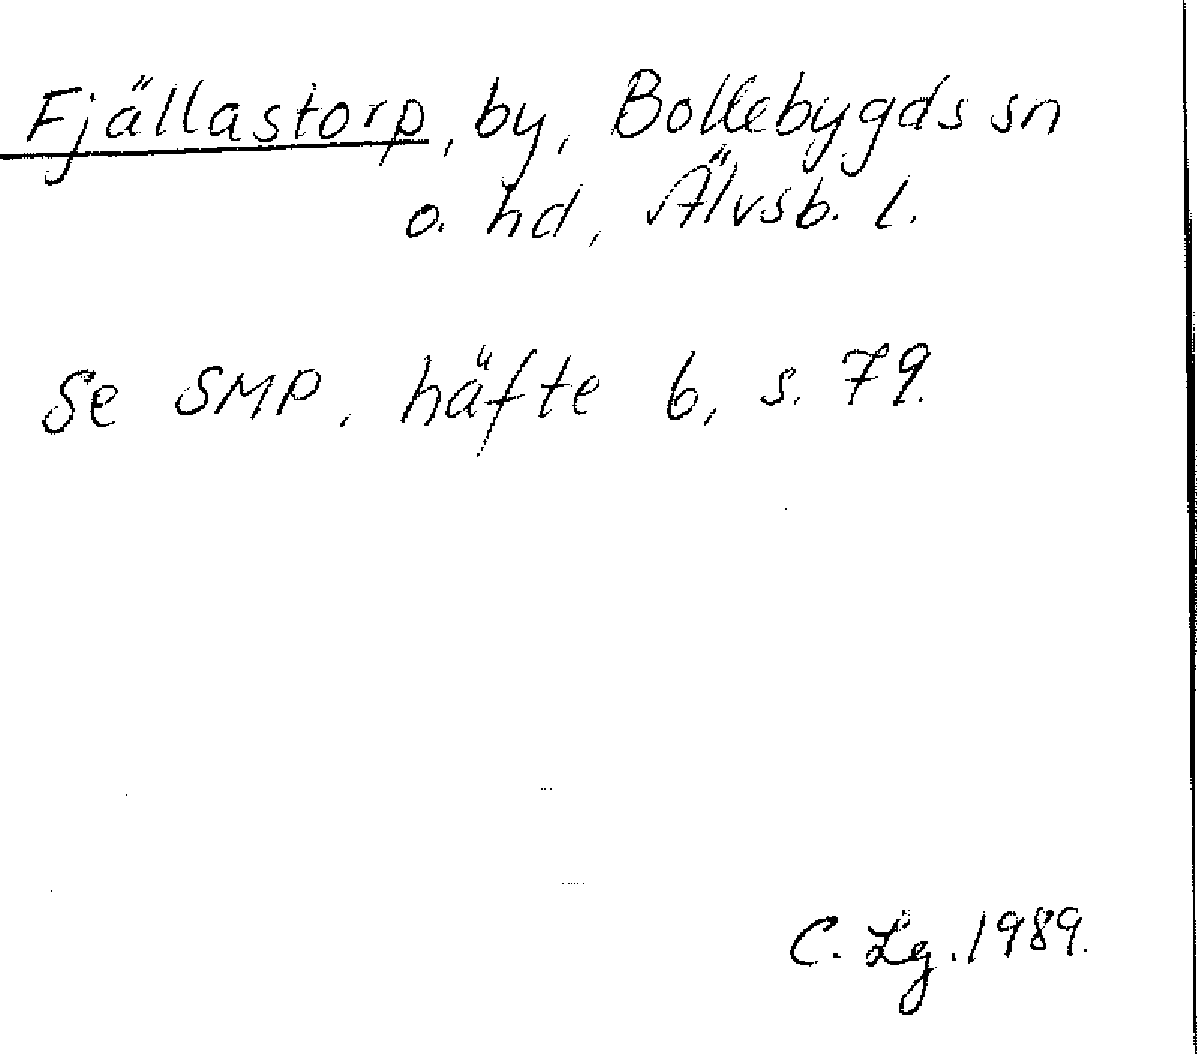 Fjällastorp, by, Bollebygds sn
o. hd, Älvsb. l.
Se SMP, häfte 6, s. 79.
C. Lg. 1989.